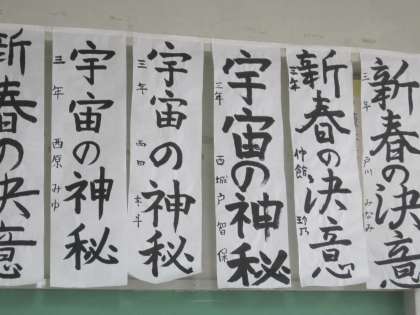 新春の決意
三年 戸川 みなみ
新春の決意
三年 仲館
宇宙の神秘
三年 西城戸 智保
宇宙の神秘
三年 西田
宇宙の神秘
三年 西原 みゆ
新春の決意